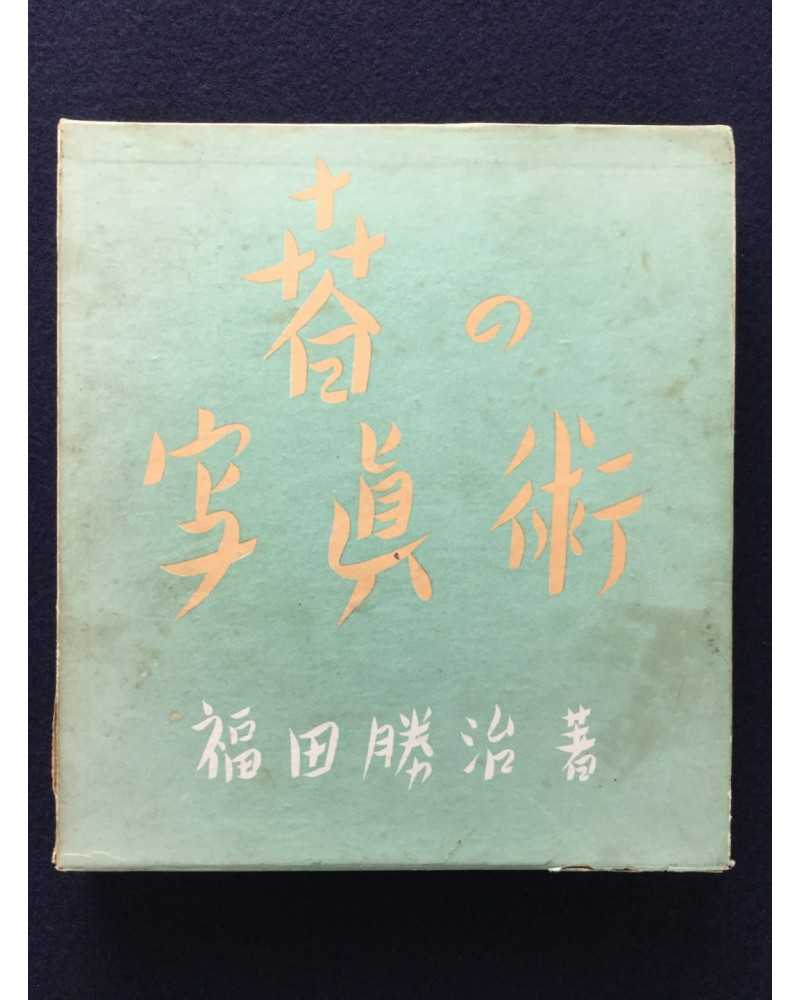 春の
写眞術
福田勝治著